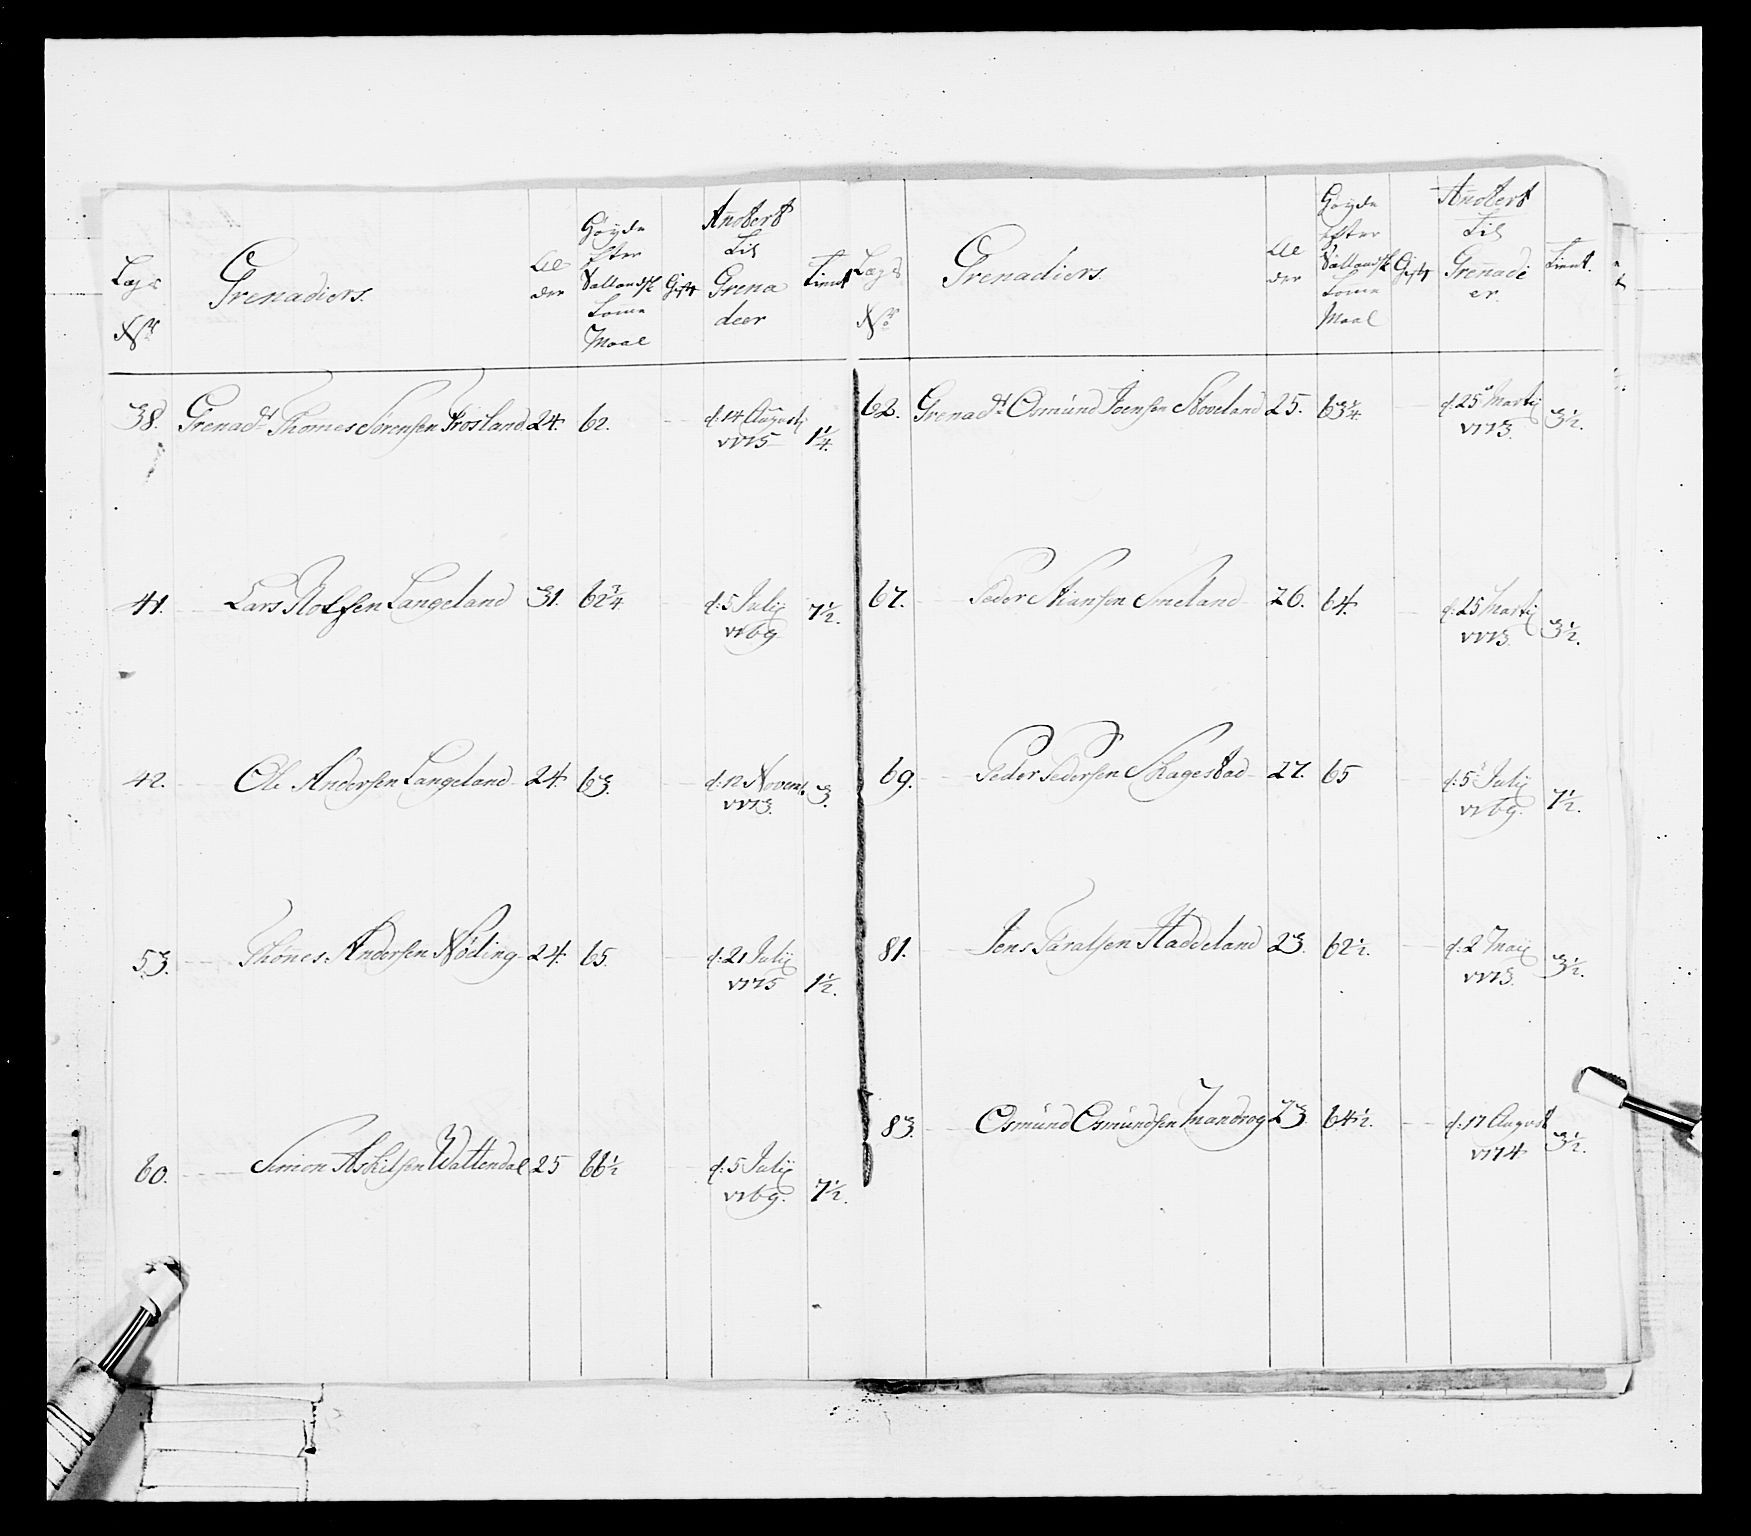 Lægs
No
Grenadiers.
Al
der
Høyde
efter
Sallandsk
Tome
Maal
Gift
Anstert
til
Grena
deer
Tient
38. Grenadr Thomes Sørensen Frøsland 24. 62. d: 14 Augustj 1775 1 1/4.
41. Lars Rolfsen Langeland 31. 62 3/4 d: 5 Julij 1769 7 1/2.
42. Ole Andersen Langeland 24. 63. d: 12 Novemb. 1773. 3.
53. Thönes Andersen Nøding 24. 65. d: 21 Julij 1775 1 1/2.
60. Simon Askilsen Wattendal 25 66 1/2 d: 5 Julij 1769. 7 1/2.
Lægs
No
Grenadiers.
Al
der
Høyde
efter
Sallandsk
Tome
Maal
Gift
Anstert
til
Grenade
er.
Tient.
62. Grenadr Osmund Joensen Stoveland 25. 63 1/4. d. 25 Martij 1773. 3 1/2.
67. Peder Stiansen Smeland 26. 64. d: 25 Martij 1773. 3 1/2.
69. Peder Pedersen Skagestad 27. 65 d: 5 Julij 1769. 7 1/2.
81. Jens Taralsen Haddeland 23. 62 1/2. d: 2 Maij 1773. 3 1/2.
83. Osmund Osmundsen Mandrog 23. 64 1/2. d: 17 August 1774 3 1/2.